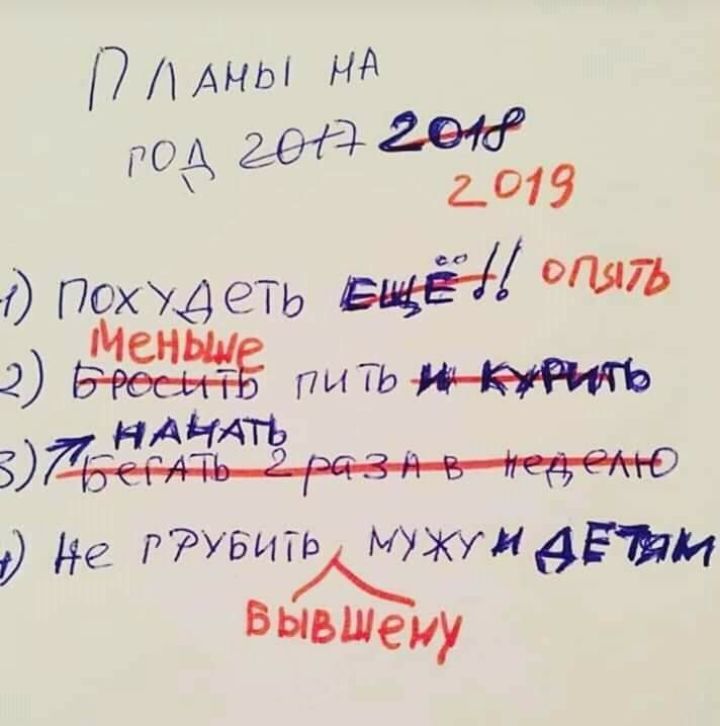 Планы на
год 2017 2018
2019
1) похудеть ЕЩЁ!! опять
меньше
2) бросить пить и курить
начать
3) бегать 2 раза в неделю
4) не грубить мужу и детям
бывшему